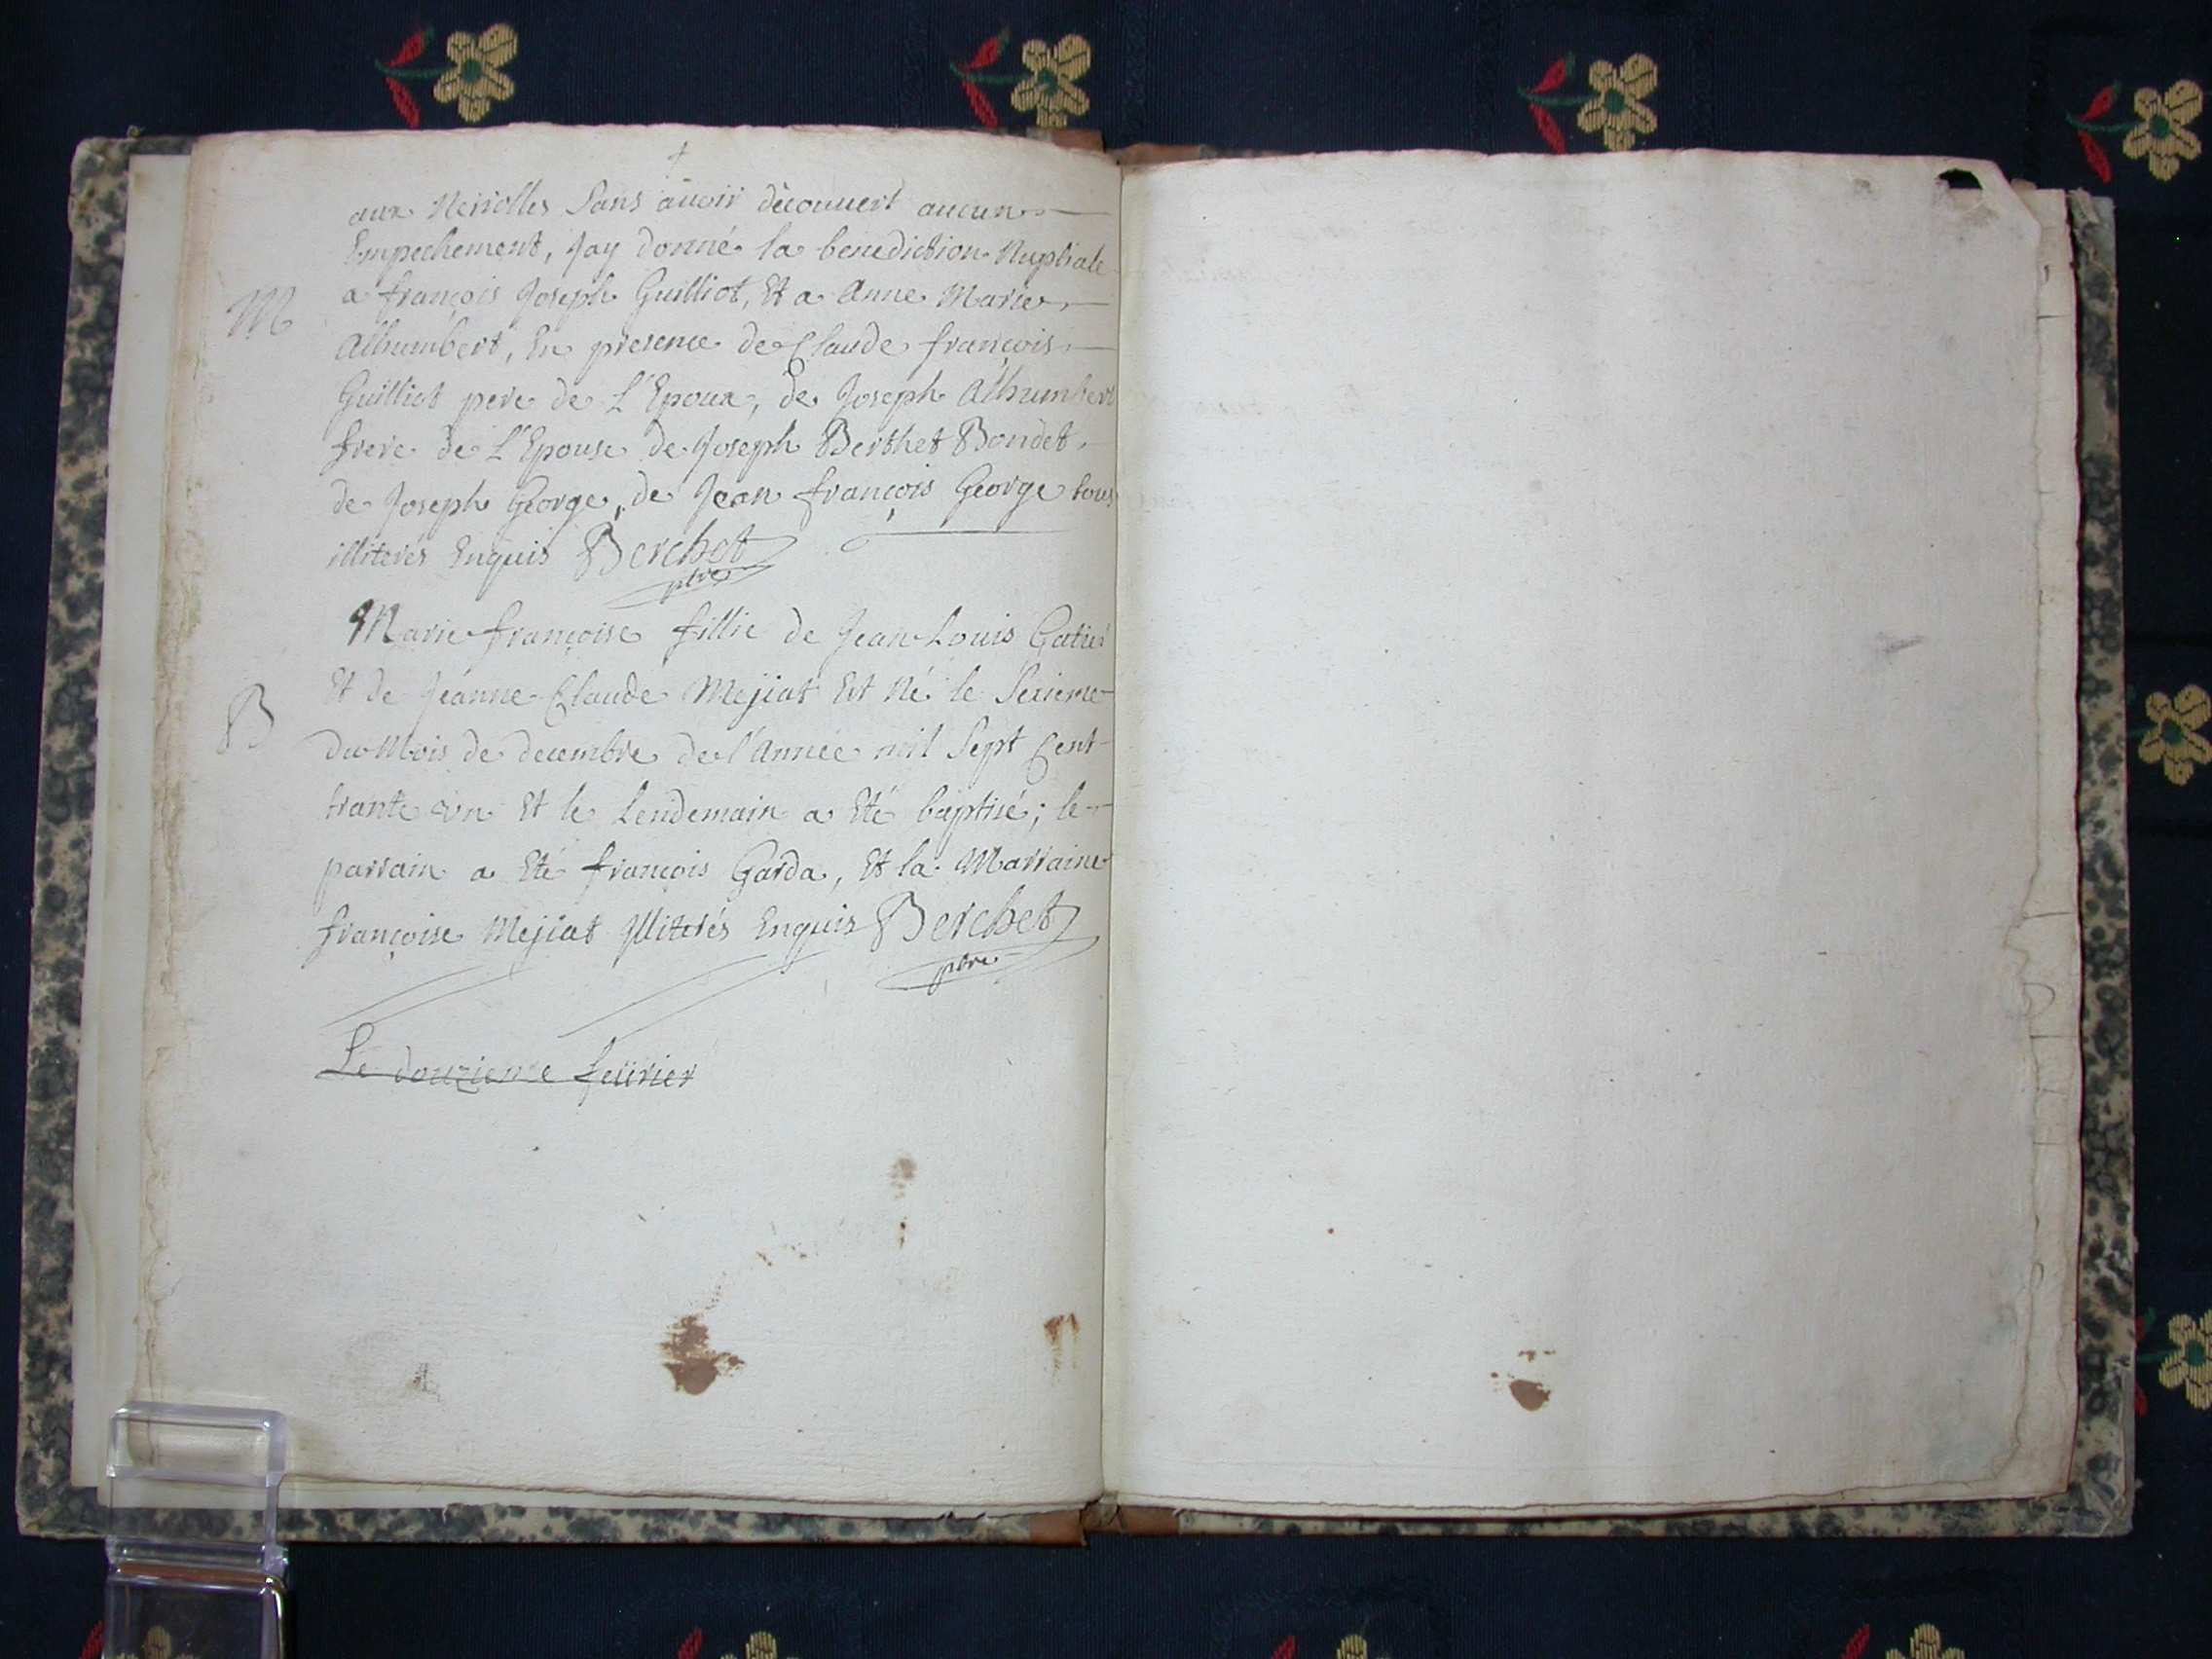 aux Neriolles Sans auoir découuert aucun
Empechement, Jay donné la benediction Nuptiale
M a françois Joseph Guilliot, Et a Anne Marie
Alhumbert, En presence de Claude françois
Guilliot pere de L'Epoux, de Joseph Alhumbert
frere de L'Epouse de Joseph Berthet Bondet
de Joseph George, de Jean françois George tous
illiterés Enquis Berchet
ptre
Marie françoise fillie de Jean Louis Gatié
Et de Jeanne Claude Mejiat Est Né le Sezieme
B du Mois de decembre de l'Année mil Sept Cent
trante vn Et le Lendemain a Eté baptisé; le
parrain a Eté françois Garda, Et la Marraine
françoise Mejiat Illiterés Enquis Berchet
ptre
Le douzieme feürier